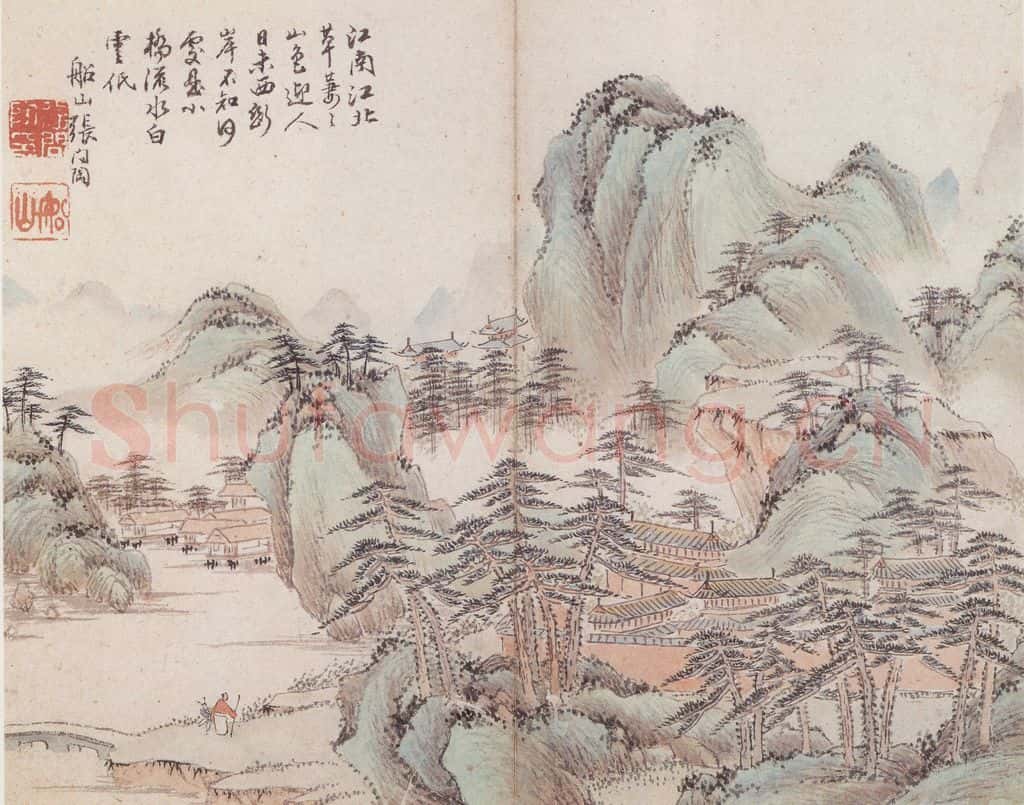 江南江北
草萋〻
山色迎人
日未西斷
岸不知何
處是小
橋流水白
雲低
船山張問陶
船山
Shufawang.CN